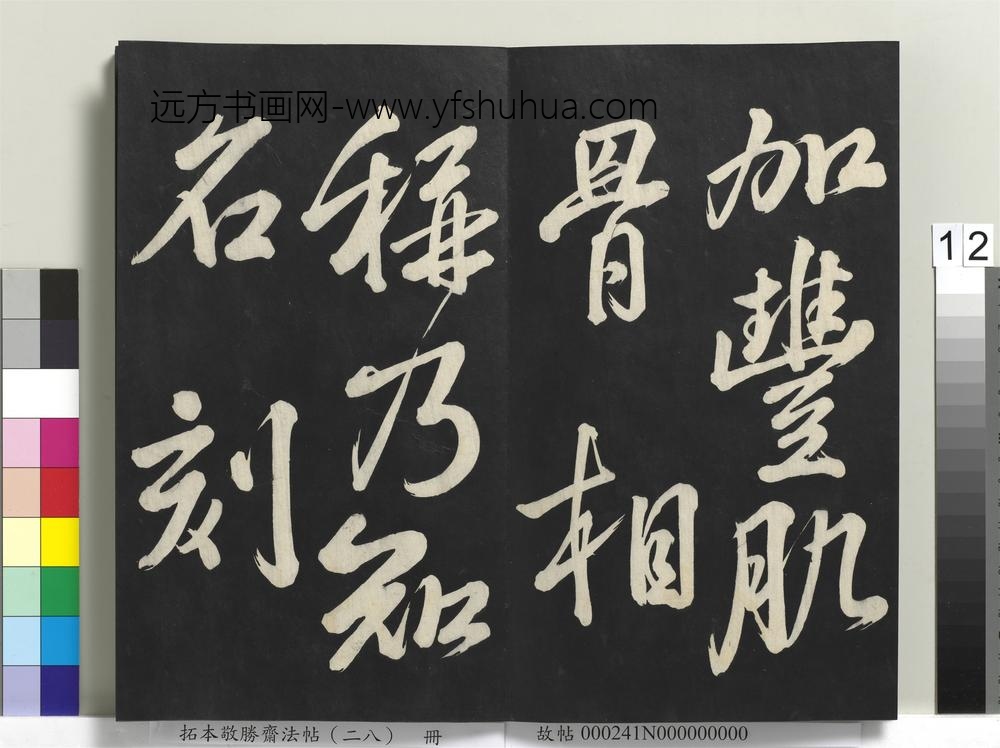 远方书画网-www.yfshuhua.com
加豐肌
骨相
稱乃知
名刻
12
拓本敬勝齋法帖（二八） 冊
故帖000241N000000000